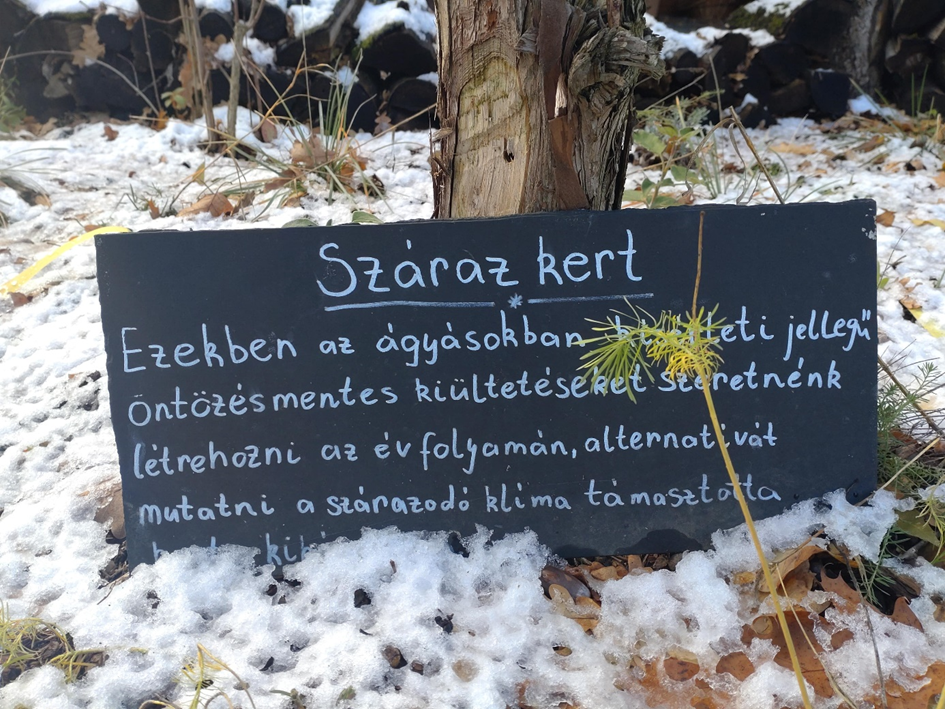 Száraz kert
Ezekben az ágyásokban jellegű
öntözésmentes kiültetéseket szeretnénk
létrehozni az év folyamán, alternatívát
mutatni a szárazodó klíma támasztotta